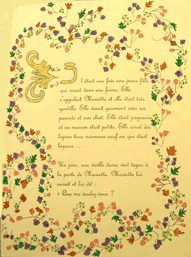 l était une fois une jeune fille
qui vivait dans une ferme. Elle
s'appelait Mariette et elle était très
gentille. Elle vivait gaiement avec ses
parents et son chat. Elle était paysanne
et sa maison était petite. Elle avait des
lapins tous normaux sauf un qui était
bizarre ...
Un jour, une vieille dame vint taper à
la porte de Mariette. Mariette lui
ouvrit et lui dit :
- Que me voulez-vous ?